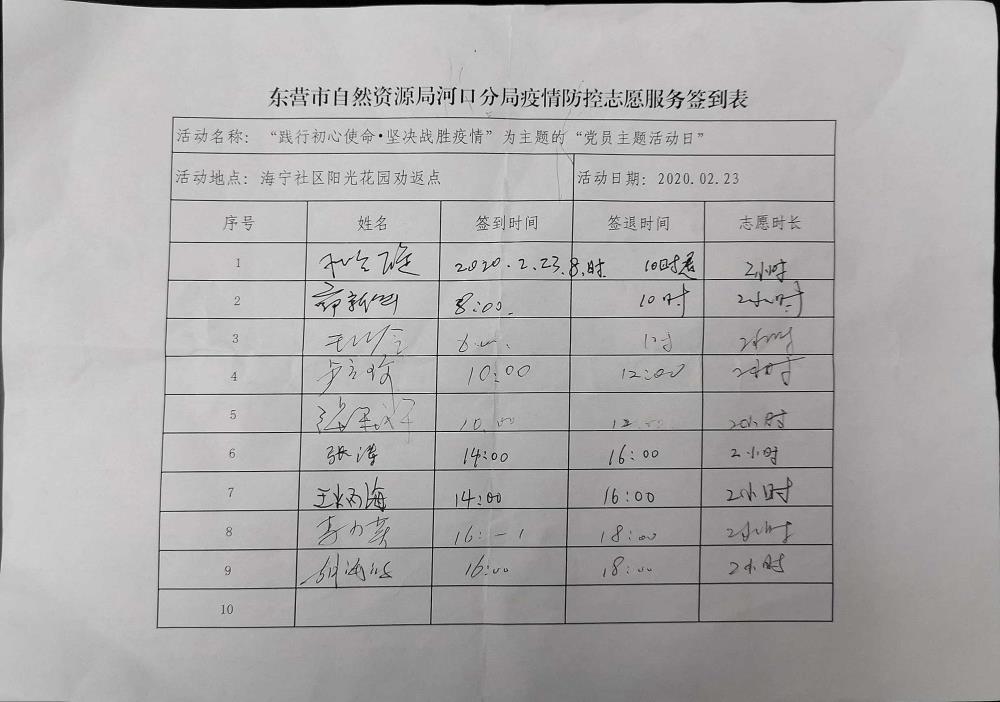 东营市自然资源局河口分局疫情防控志愿服务签到表
活动名称：“践行初心使命·坚决战胜疫情”为主题的“党员主题活动日”
活动地点：海宁社区阳光花园劝返点 活动日期：2020.02.23
序号 姓名 签到时间 签退时间 志愿时长
1 2020.2.23.8时 10时 2小时
2 8:00. 10时 2小时
3 2小时
4 10:00 12:00 2小时
5 10.00 12.00 2小时
6 张涛 14:00 16:00 2小时
7 王炳海 14:00 16:00 2小时
8 18:00 2小时
9 16:00 18:00 2小时
10